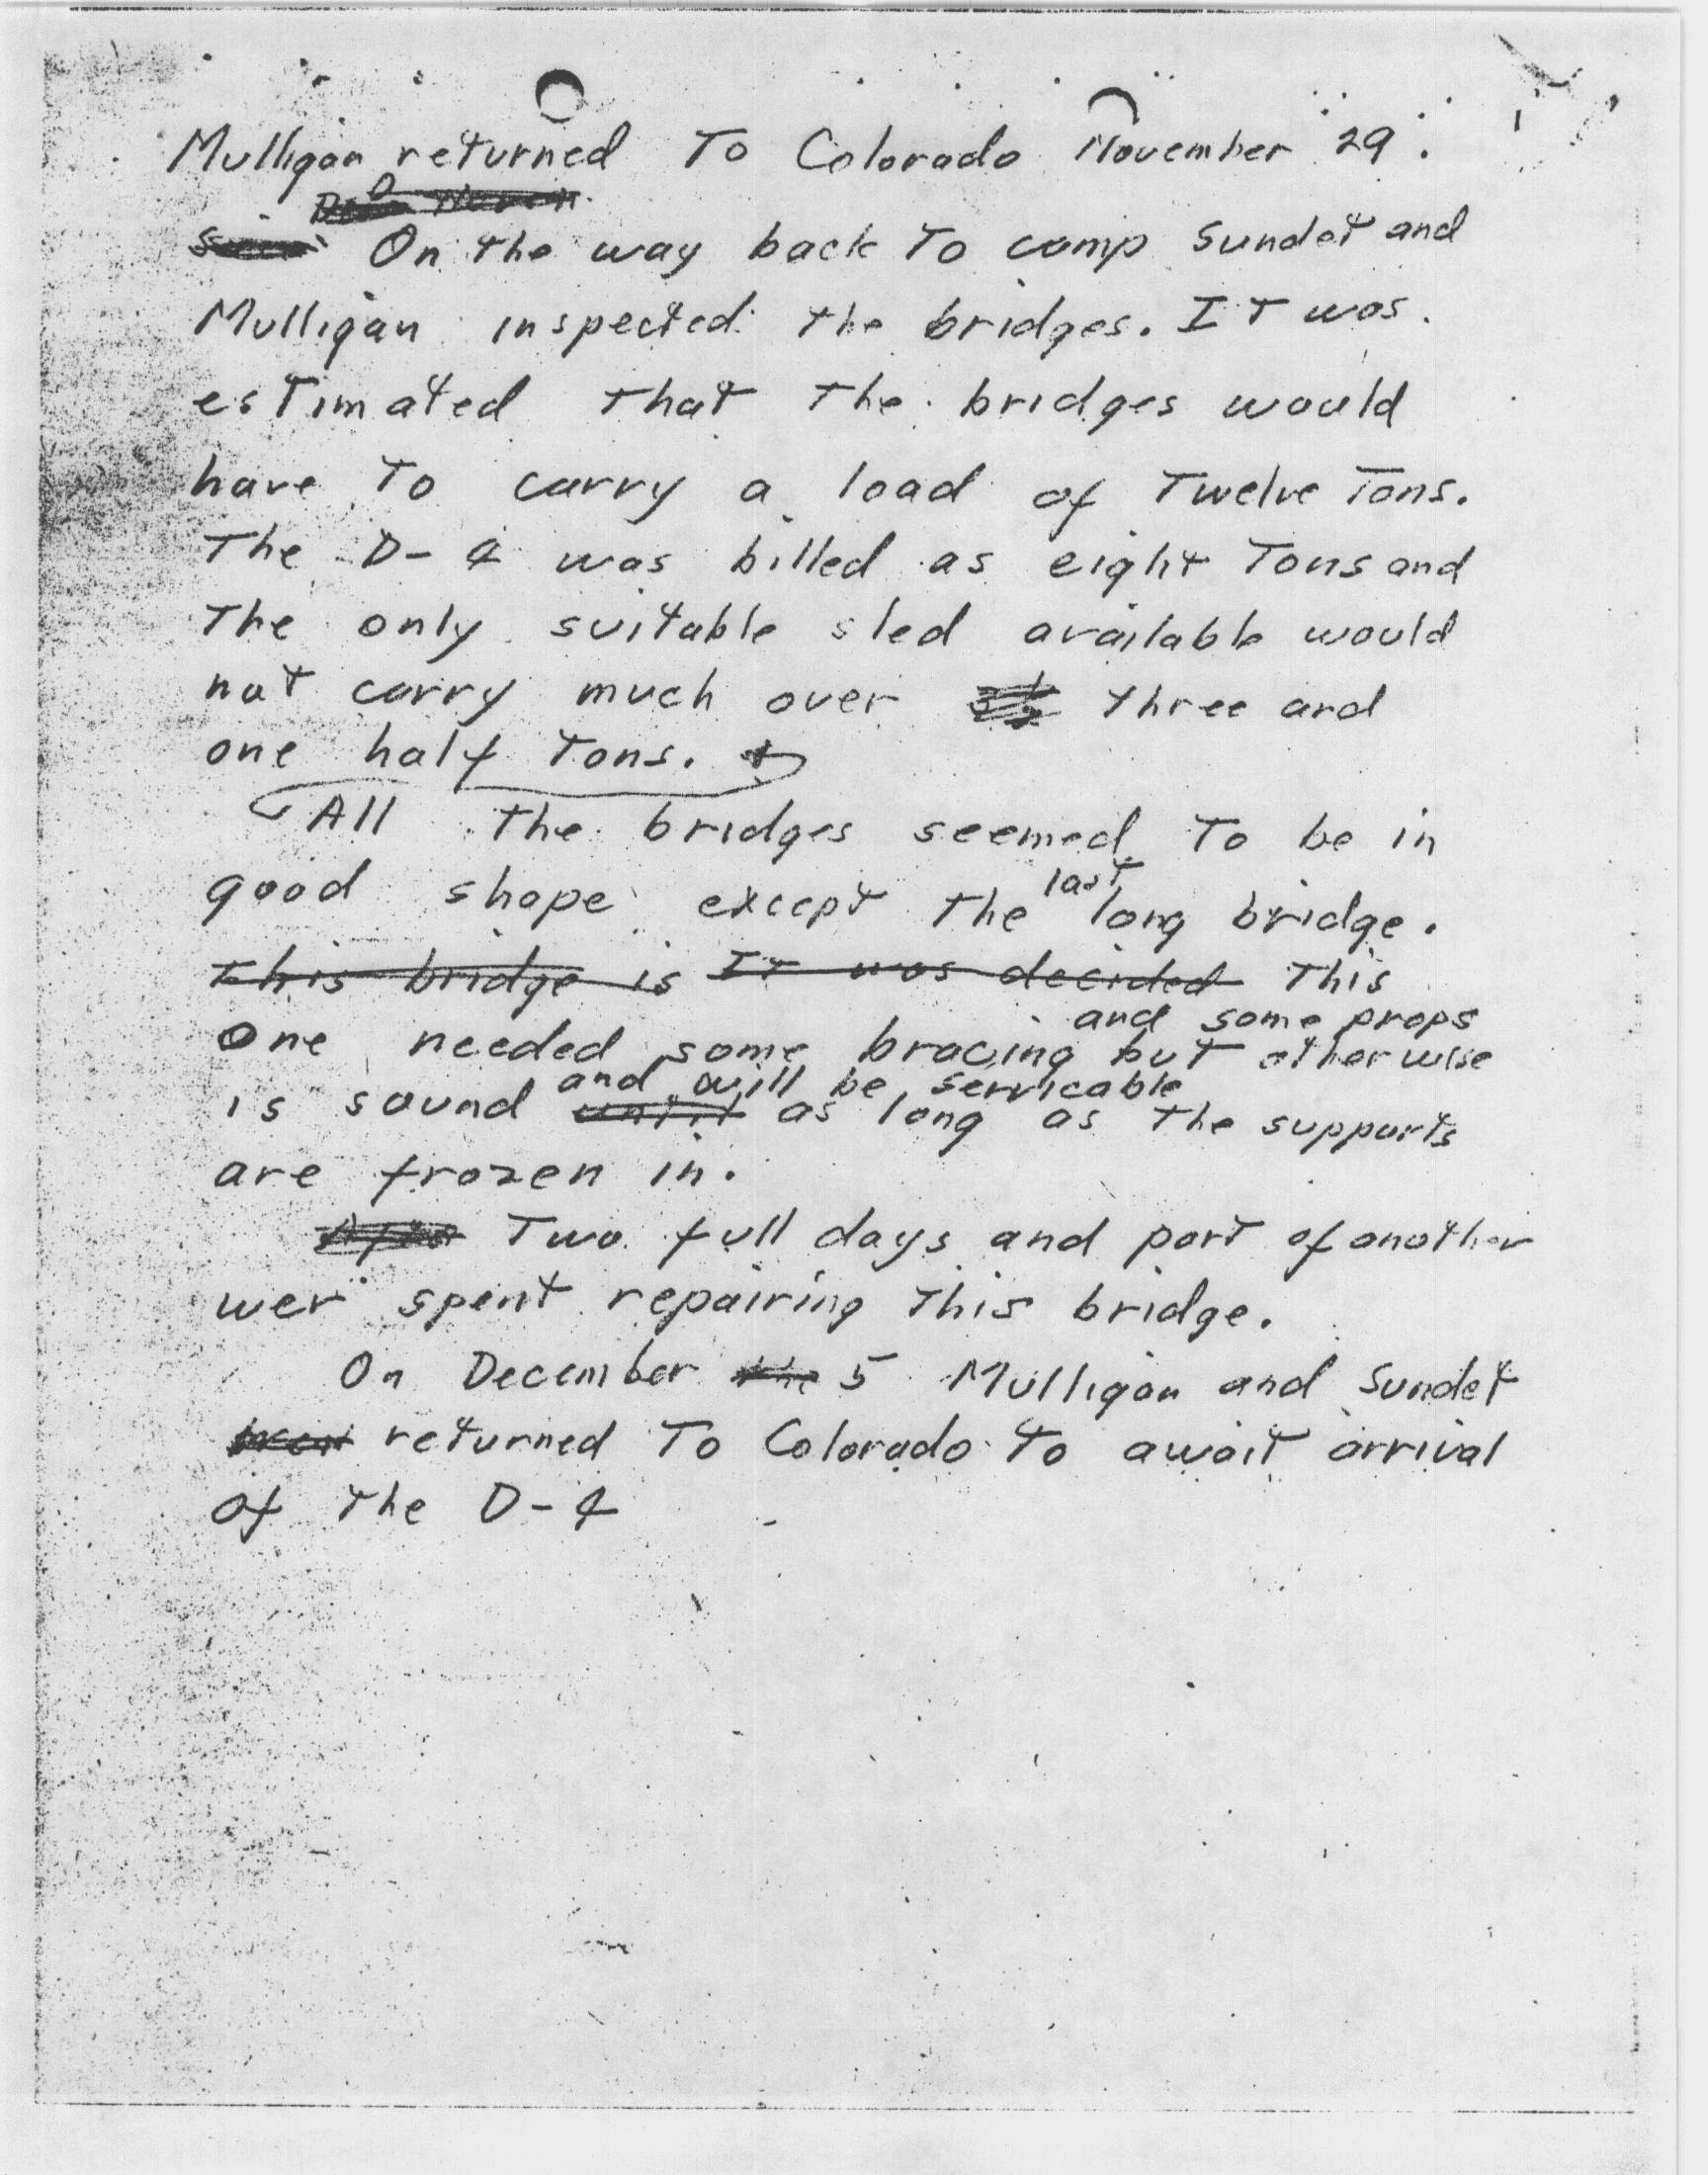 Mulligan returned To Colorado November 29.
On the way back To camp Sundet and
Mulligan inspected the bridges. IT was
estimated that the bridges would
have To carry a load of Twelve Tons.
The D-4 was billed as eight Tons and
The only suitable sled available would
not carry much over three and
one half Tons.
All the bridges seemed To be in
last
good shape except the long bridge.
This bridge is It was decided This
and some props
One needed some bracing but otherwise
and will be servicable
is sound until as long as the supports
are frozen in.
Two full days and part of another
wer spent repairing this bridge.
On December the 5 Mulligan and Sundet
returned To Colorado to await arrival
of the D-4